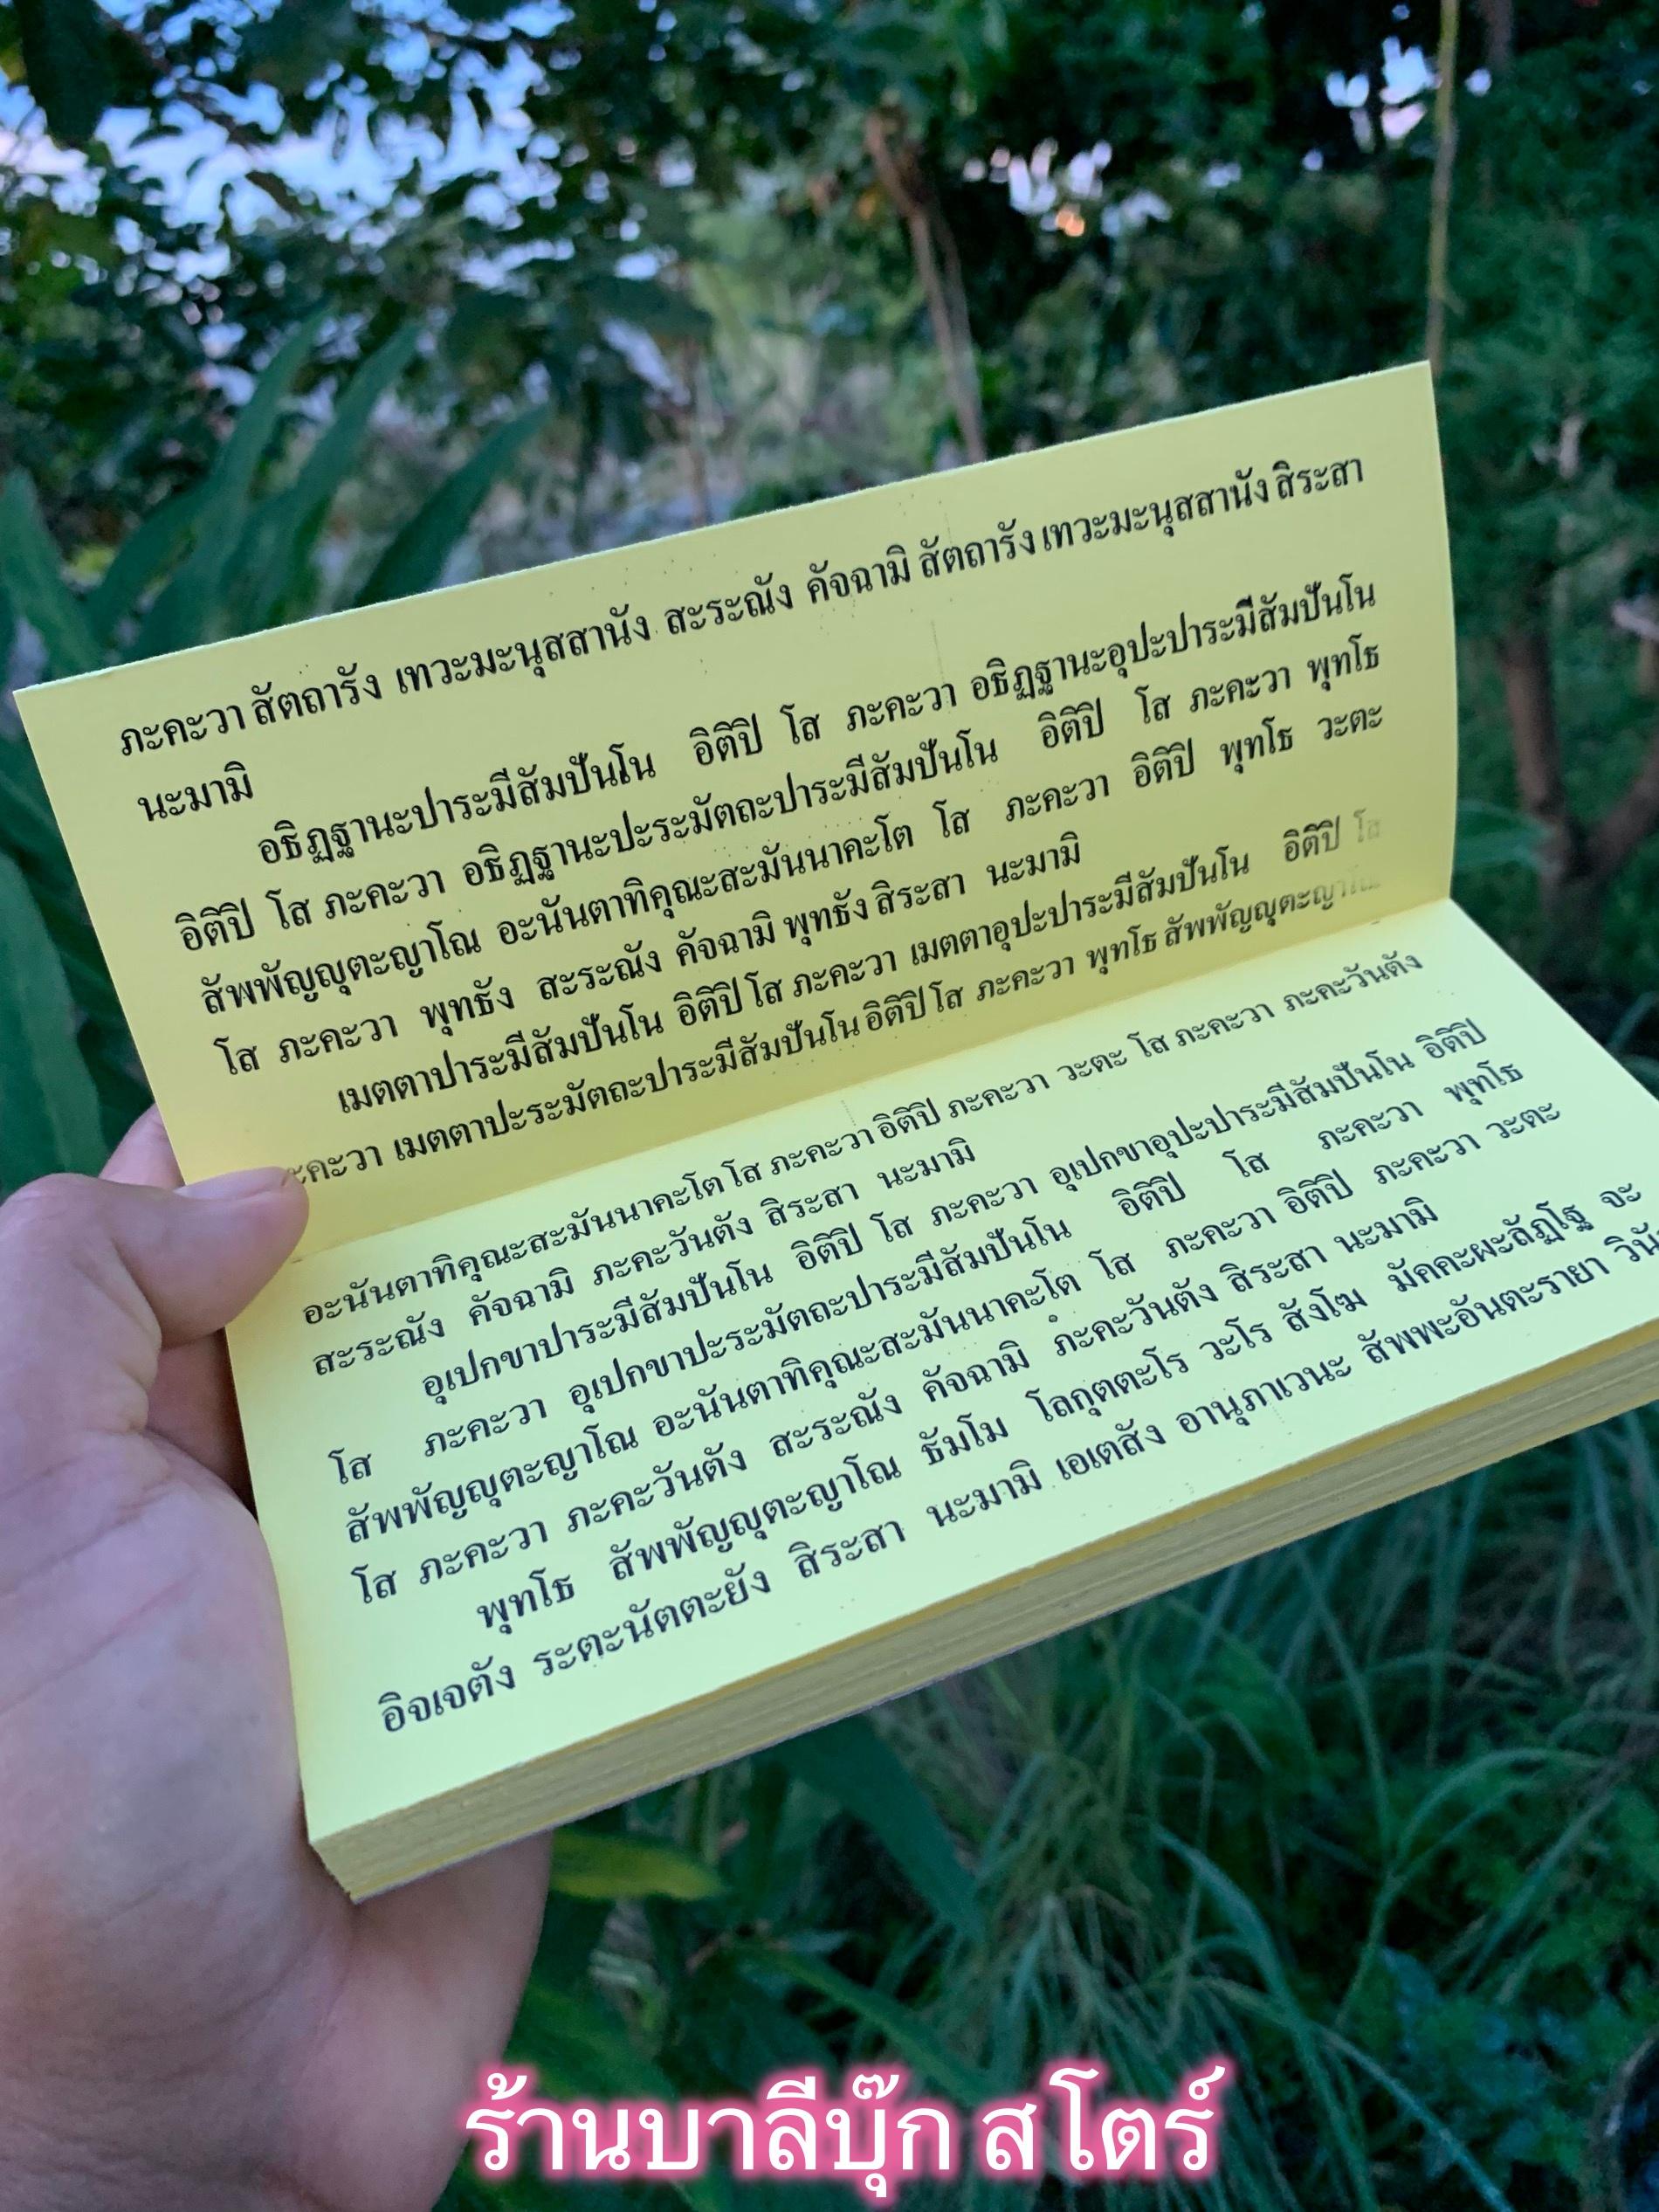 ภะคะวา สัตถารัง เทวะมะนุสสานัง สะระณัง คัจฉามิ สัตถารัง เทวะมะนุสสานัง สิระสา
นะมามิ
อธิฏฐานะปาระมีสัมปันโน อิติปิ โส ภะคะวา อธิฏฐานะอุปะปาระมีสัมปันโน
อิติปิ โส ภะคะวา อธิฏฐานะปะระมัตถะปาระมีสัมปันโน อิติปิ โส ภะคะวา พุทโธ
สัพพัญญุตะญาโณ อะนันตาทิคุณะสะมันนาคะโต โส ภะคะวา อิติปิ พุทโธ วะตะ
โส ภะคะวา พุทธัง สะระณัง คัจฉามิ พุทธัง สิระสา นะมามิ
เมตตาปาระมีสัมปันโน อิติปิ โส ภะคะวา เมตตาอุปะปาระมีสัมปันโน อิติปิ โส
ะคะวา เมตตาปะระมัตถะปาระมีสัมปันโน อิติปิ โส ภะคะวา พุทโธ สัพพัญญุตะญาโณ
อะนันตาทิคุณะสะมันนาคะโต โส ภะคะวา อิติปิ ภะคะวา วะตะ โส ภะคะวา ภะคะวันตัง
สะระณัง คัจฉามิ ภะคะวันตัง สิระสา นะมามิ
อุเปกขาปาระมีสัมปันโน อิติปิ โส ภะคะวา อุเปกขาอุปะปาระมีสัมปันโน อิติปิ
โส ภะคะวา อุเปกขาปะระมัตถะปาระมีสัมปันโน อิติปิ โส ภะคะวา พุทโธ
สัพพัญญุตะญาโณ อะนันตาทิคุณะสะมันนาคะโต โส ภะคะวา อิติปิ ภะคะวา วะตะ
โส ภะคะวา ภะคะวันตัง สะระณัง คัจฉามิ ภะคะวันตัง สิระสา นะมามิ
พุทโธ สัพพัญญุตะญาโณ ธัมโม โลกุตตะโร วะโร สังโฆ มัคคะผะลัฏโฐ จะ
อิจเจตัง ระตะนัตตะยัง สิระสา นะมามิ เอเตสัง อานุภาเวนะ สัพพะอันตะรายา
ร้านบาลีบุ๊ก สโตร์